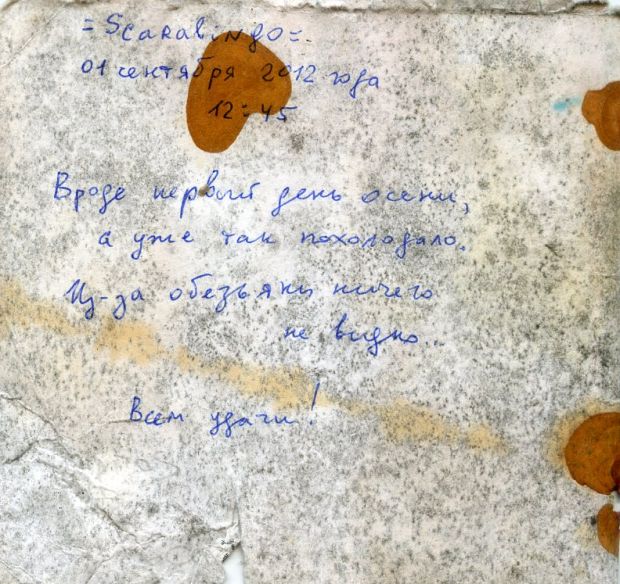 = Scarabingo =.
01 сентября 2012 года
12:45
Вроде первый день осени,
а уже так похолодало.
Из-за обезьяны ничего
не видно...
Всем удачи!